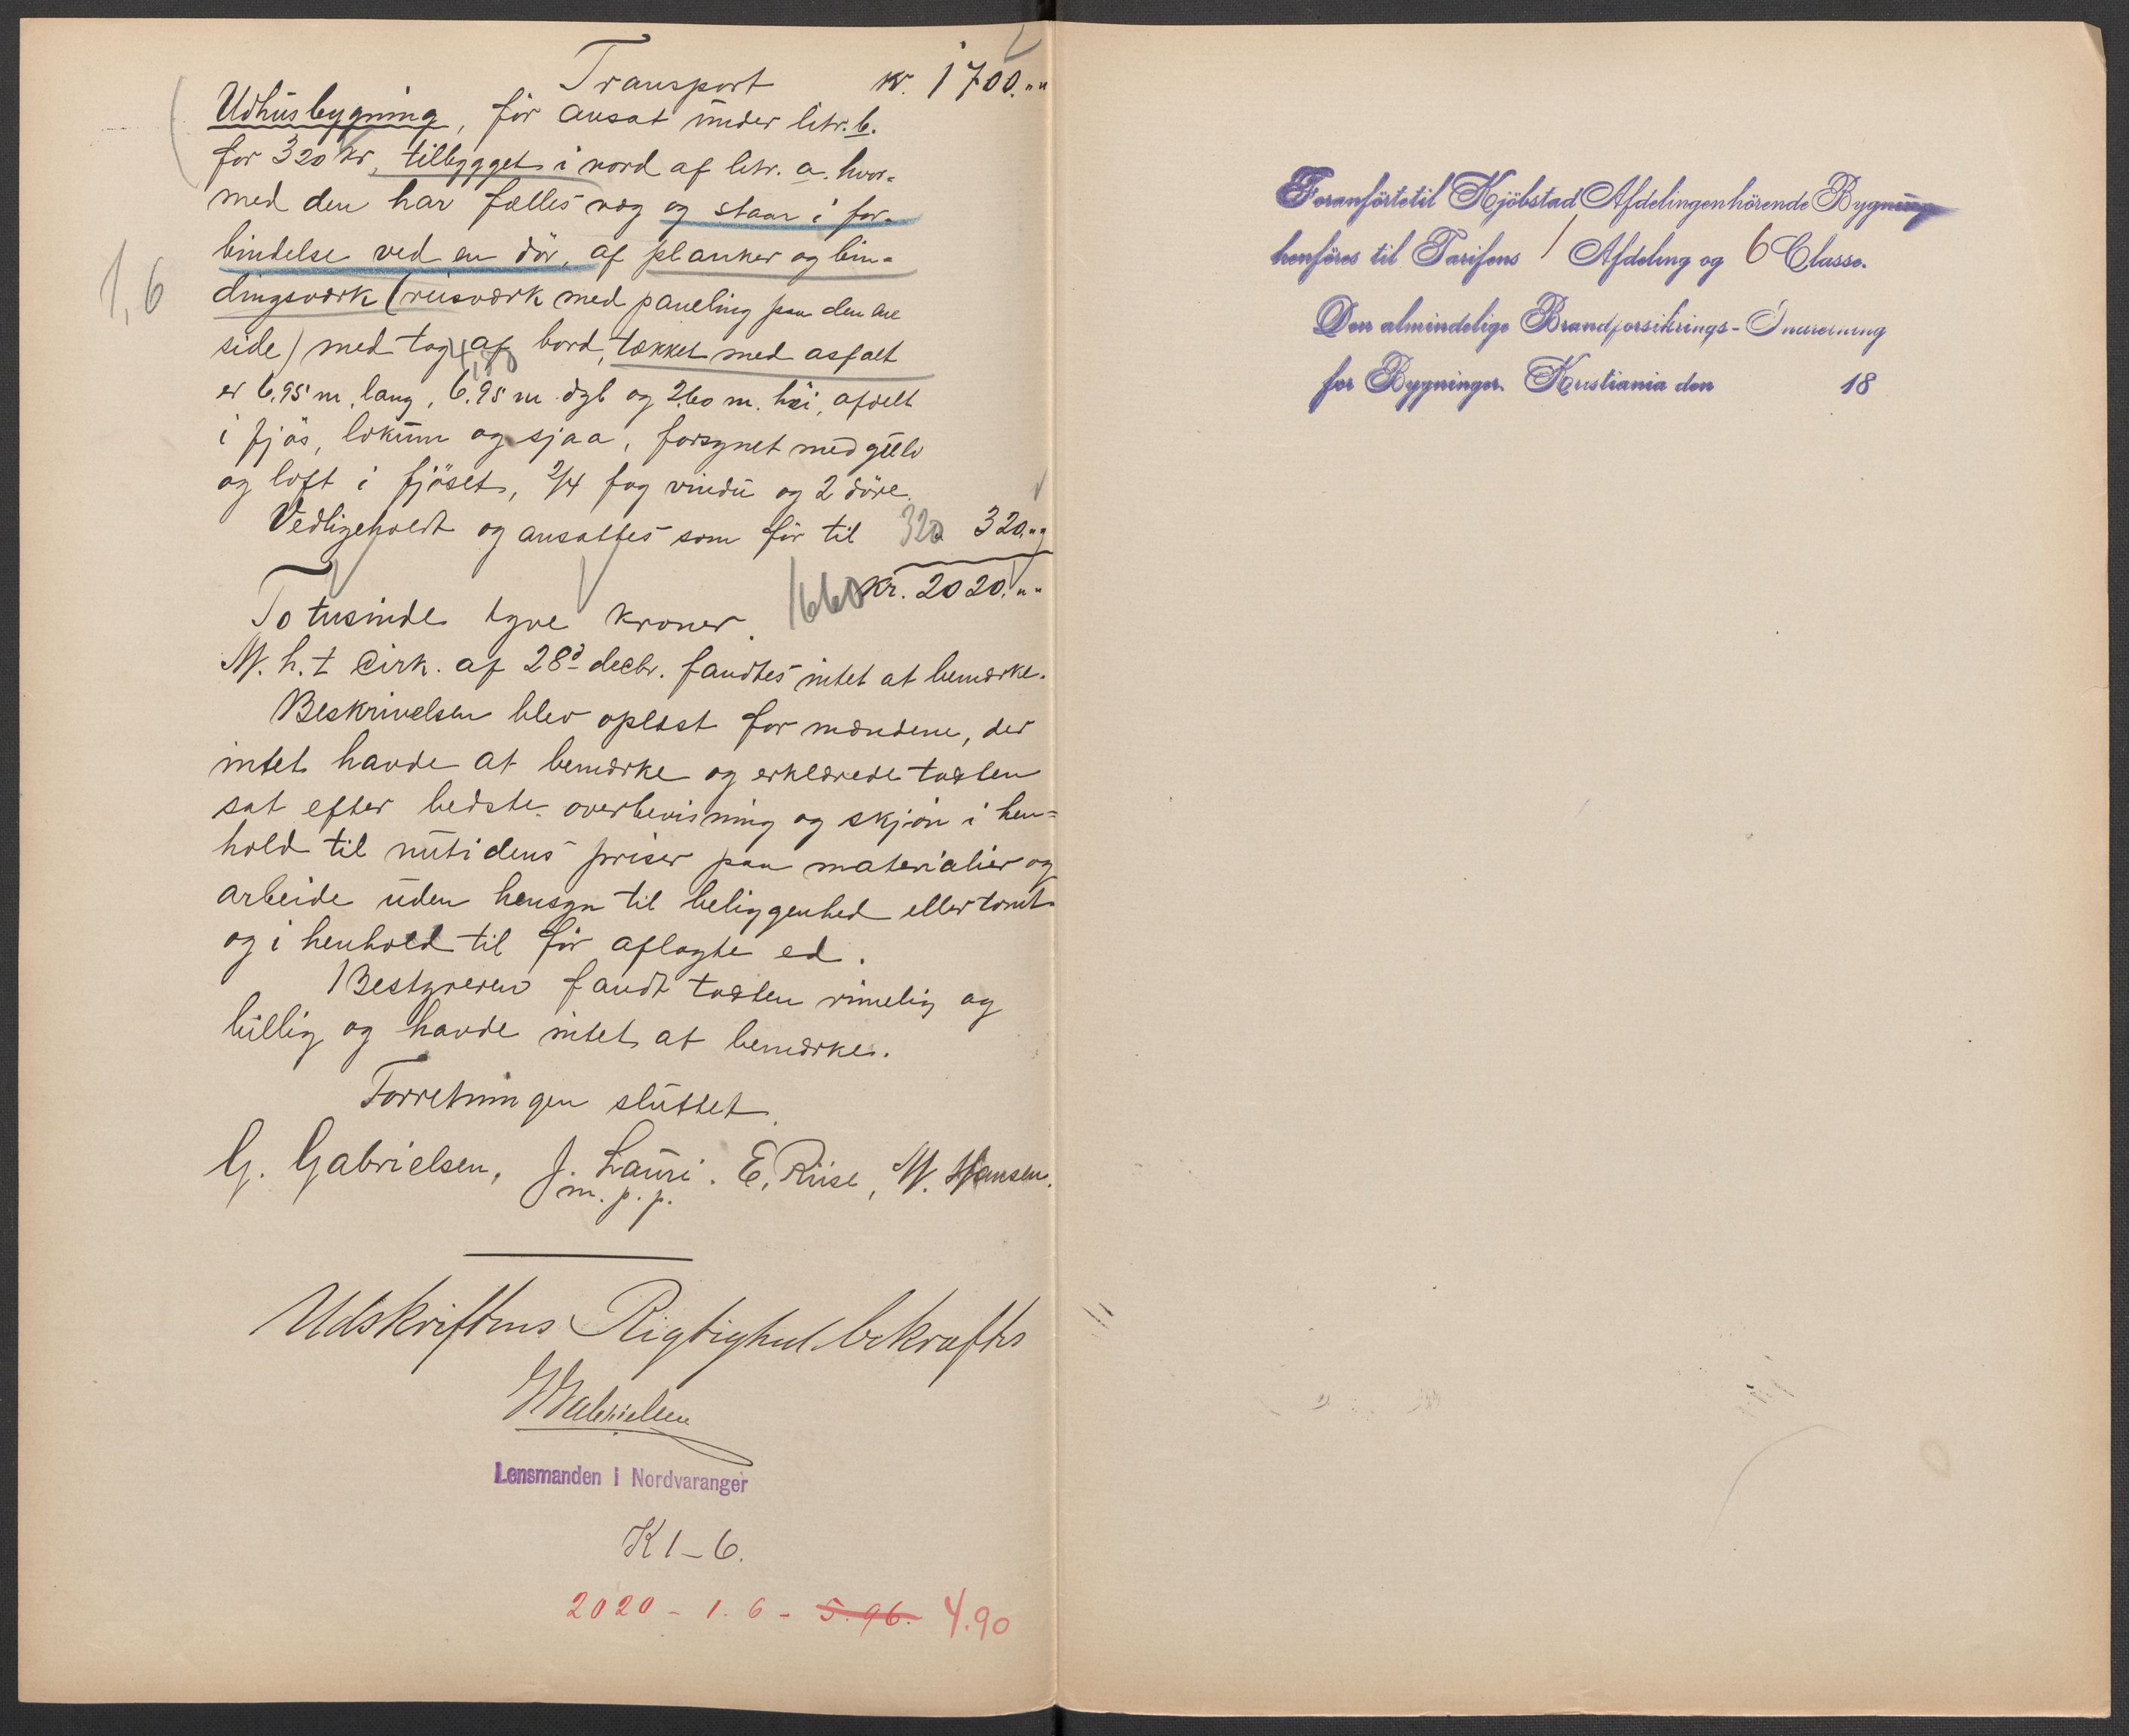 Transport kr. 1700.""
Udhusbygning, før ansat under litr. b.
for 320 kr, tilbygget i nord af litr. a. hvor-
med den har fælles væg og staar i for-
bindelse ved en dør, af planker og bin-
1,6
dingsværk (reisværk med paneling paa den ene
side) med tag af bord, tækket med asfalt
4,80
er 6,95 m. lang, 6.95 m dyb og 2.60 m. høi, afdelt
i fjøs, lokum og sjaa, forsynet med gulv
og loft i fjøset, 2/4 fag vindu og 2 døre.
Vedligeholdt og ansattes som før til 320 320.""
1660 kr. 2020.""
To tusinde tyve kroner.
M. h. t cirk. af 28d decbr. fandtes intet at bemærke.
Beskrivelsen blev oplæst for mændene, der
intet havde at bemærke og erklærede taxten
sat efter bedste overbevisning og skjøn i hen=
hold til nutidens priser paa materialier og
arbeide uden hensyn til beliggenhed eller tomt
og i henhold til før aflagte ed.
Bestyreren fandt taxten rimelig og
billig og havde intet at bemærke.
Forretningen sluttet.
G. Gabrielsen, J. Lauri. E. Riise, M. Hansen.
m. p. p.
Udskriftens Rigtighed bekræftes
GGabrielsen
Lensmanden i Nordvaranger
K 1-6.
2020 - 1.6 - 5.96. 4.90
Foranførte til Kjöbstad Afdelingen hörende Bygning
henföres til Tarifens 1 Afdeling og 6 Classe.
Den almindelige Brandforsikrings-Indretning
for Bygninger. Kristiania den 18